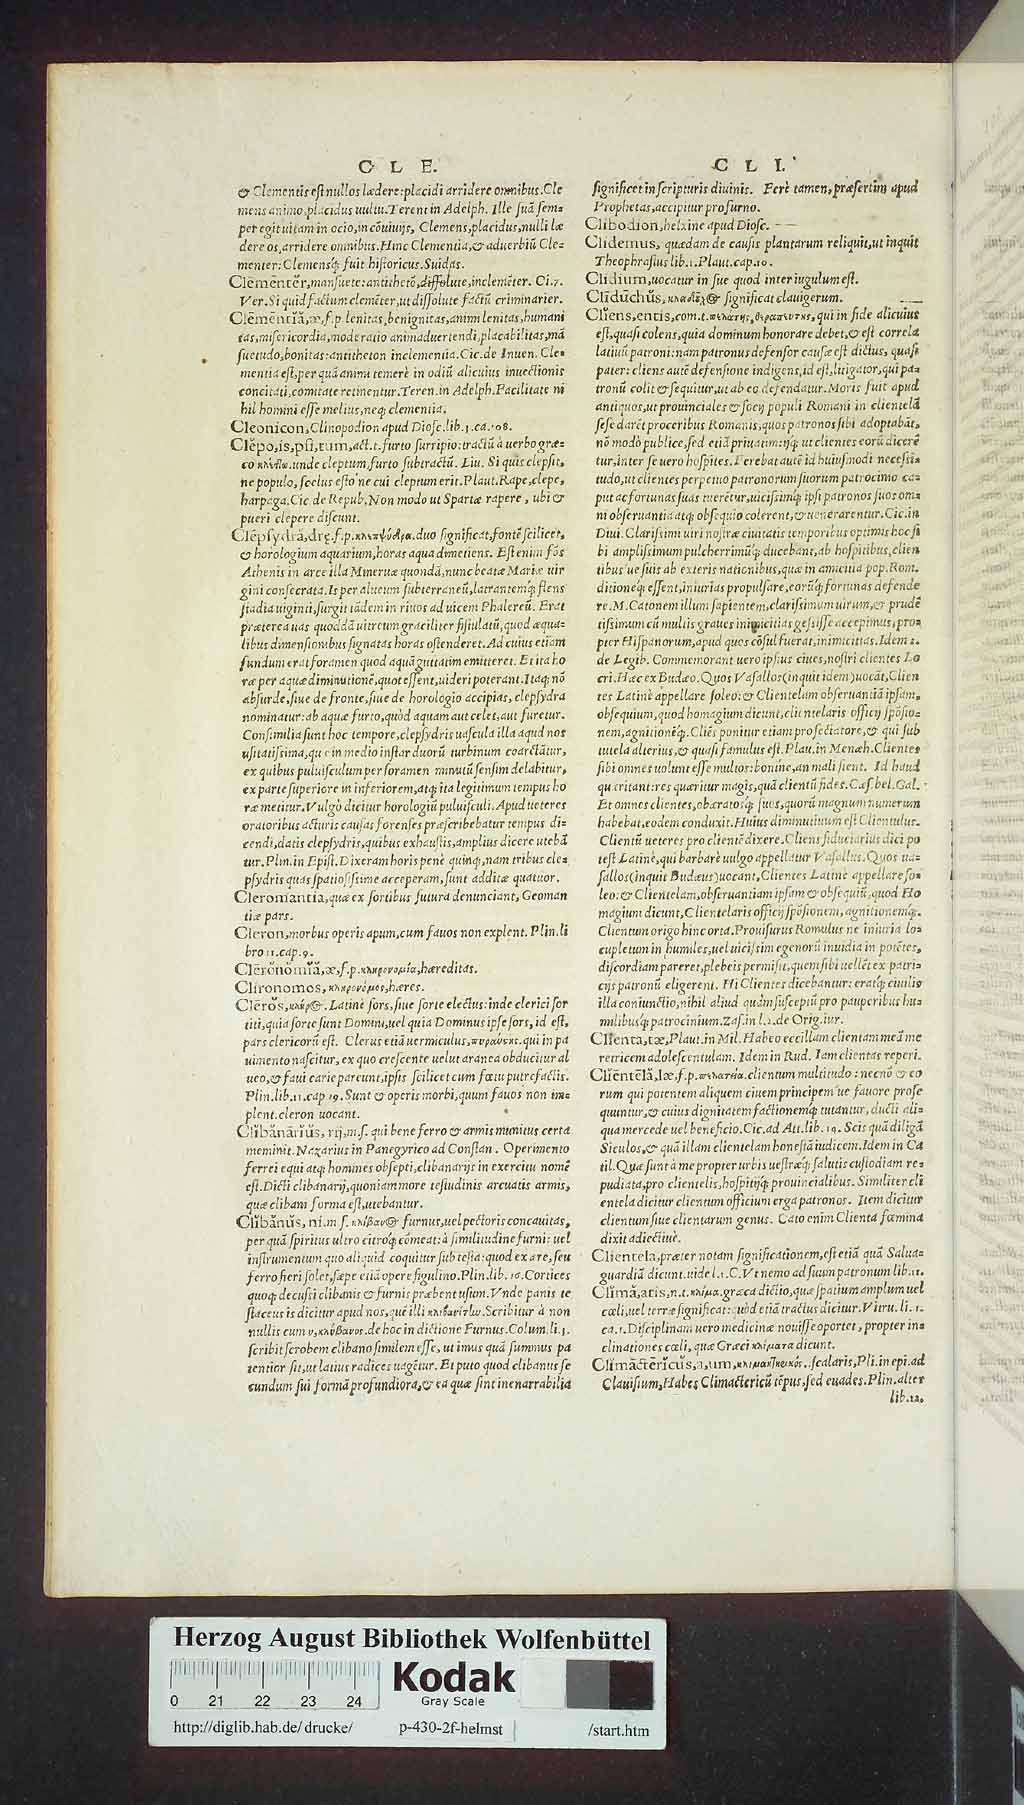 C L E.
& Clementis est nullos lædere: placidi arridere omnibus. Cle
mens animo, placidus uultu. Terent in Adelph. Ille suā sem=
per egit uitam in ocio, in cōuiuijs, Clemens, placidus, nulli læ
dere os, arridere omnibus. Hinc Clementia, & aduerbiū Cle=
menter: Clemensq́; fuit historicus. Suidas.
Clēmēntĕr, mansuete: antithetō, dissolute, inclemēter. Ci. 7.
Ver. Si quid factum clemēter, ut dissolute factū criminarier.
Clēmēntĭă, æ, f. p. lenitas, benignitas, animi lenitas, humani
tas, misericordia, moderatio animaduertendi, placabilitas, mā
suetudo, bonitas: antitheton inclementia. Cic. de Inuen. Cle=
mentia est, per quā animi temerè in odiū alicuius inuectionis
concitati, comitate retinentur. Teren. in Adelph. Facilitate ni
hil homini esse melius, neq; clementia.
Cleonicon, Clinopodion apud Diosc. lib. 3. ca. 108.
Clĕpo, is, psi, tum, act. t. furto surripio: tractū à uerbo græ=
co κλέπτω. unde cleptum furto subtractū. Liu. Si quis clepsit,
ne populo, scelus esto' ne cui cleptum erit. Plaut. Rape, clepe,
harpaga. Cic. de Repub. Non modo ut Spartæ rapere, ubi &
pueri clepere discunt.
Clĕpsydră, drę, f. p. κλεπψύδρα. duo significat, fontē scilicet,
& horologium aquarium, horas aqua dimetiens. Est enim fōs
Athenis in arce illa Mineruæ quondā, nunc beatæ Mariæ uir
gini consecrata. Is per alueum subterraneū, latrantemq́; flens
stadia uiginti, surgit tādem in riuos ad uicem Phalereū. Erat
præterea uas quoddā uitreum graciliter fistulatū, quod æqua=
libus dimensionibus signatas horas ostenderet. Ad cuius etiam
fundum erat foramen quod aquā guttatim emitteret. Et ita ho
ræ per aquæ diminutionē, quot essent, uideri poterant. Itaq; nō
absurde, siue de fronte, siue de horologio accipias, clepsydra
nominatur: ab aquæ furto, quòd aquam aut celet, aut furetur.
Consimilia sunt hoc tempore, clepsydris uascula illa apud nos
usitatissima, quæ in medio instar duorū turbinum coarctātur,
ex quibus puluisculum per foramen minutū sensim delabitur,
ex parte superiore in inferiorem, atq; ita legitimum tempus ho
ræ metitur. Vulgò dicitur horologiū puluisculi. Apud ueteres
oratoribus acturis causas forenses præscribebatur tempus di=
cendi, datis clepsydris, quibus exhaustis, amplius dicere utebā
tur. Plin. in Epist. Dixeram horis penè quinq;, nam tribus cle=
psydris quas spatiosissime acceperam, sunt additæ quatuor.
Cleromantia, quæ ex sortibus futura denunciant, Geoman
tiæ pars.
Cleron, morbus operis apum, cum fauos non explent. Plin. li
bro 11. cap. 9.
Clērŏnŏmĭă, æ, f. p. κληρονομία, hæreditas.
Clironomos, κληρονόμος, hæres.
Clērŏs, κλῆρος. Latinè sors, siue sorte electus: inde clerici sor
titi, quia sorte sunt Domini, uel quia Dominus ipse sors, id est,
pars clericorū est. Clerus etiā uermiculus, πυραύστης. qui in pa
uimento nascitur, ex quo crescente uelut aranea obducitur al
ueo, & faui carie pareunt, ipsis scilicet cum fœtu putrefactis.
Plin. lib. 11. cap. 19. Sunt & operis morbi, quum fauos non im=
plent. cleron uocant.
Clībănārĭŭs, rij, m. s. qui bene ferro & armis munitus certa
meminit. Nazarius in Panegyrico ad Constan. Operimento
ferrei equi atq; homines obsepti, clibanarijs in exercitu nomē
est. Dicti clibanarij, quoniam more testudinis arcuatis armis,
quæ clibani forma est, utebantur.
Clībănŭs, ni. m s. κλίβανος furnus, uel pectoris concauitas,
per quā spiritus ultro citroq́; cōmeat: à similitudine furni: uel
instrumentum quo aliquid coquitur sub testa: quod ex ære, seu
ferro fieri solet, sæpe etiā opere figulino. Plin. lib. 16. Cortices
quoq; decusti clibanis & furnis præbent usum. Vnde panis te
staceus is dicitur apud nos, quē illi κλιβανίτω. Scribitur à non
nullis cum υ, κλύβανος. de hoc in dictione Furnus. Colum. li. 5.
scribit scrobem clibano similem esse, ut imus quā summus pa
tentior sit, ut latius radices uagētur. Et puto quod clibanus se
cundum sui formā profundiora, & ea quæ sint inenarrabilia
C L I.
significet in scripturis diuinis. Ferè tamen, præsertim apud
Prophetas, accipitur pro furno.
Clibodion, helxine apud Diosc.
Clidemus, quædam de causis plantarum reliquit, ut inquit
Theophrastus lib. 1. Plaut. cap. 10.
Clidium, uocatur in sue quod inter iugulum est.
Clīdūchŭs, κλειδοῦχος significat clauigerum.
Clĭens, entis, com. t. πελάτης, θεραπευτὴς, qui in fide alicuius
est, quasi colens, quia dominum honorare debet, & est correla
latiuū patroni: nam patronus defensor causæ est dictus, quasi
pater: cliens autē defensione indigens, id est, litigator, qui pa=
tronū colit & sequitur, ut ab eo defendatur. Moris fuit apud
antiquos, ut prouinciales & socij populi Romani in clientelā
sese darēt proceribus Romanis, quos patronos sibi adoptabāt,
nō modò publice, sed etiā priuatim: ijq́; ut clientes eorū dicerē
tur, inter se uero hospites. Ferebat autē id huiusmodi necessi=
tudo, ut clientes perpetuo patronorum suorum patrocinio ca=
put ac fortunas suas tuerētur, uicissimq́; ipsi patronos suos om=
ni obseruantia atq; obsequio colerent, & uenerarentur. Cic. in
Diui. Clarissimi uiri nostræ ciuitatis temporibus optimis hoc si
bi amplissimum pulcherrimūq́; ducebant, ab hospitibus, clien
tibus ue suis ab exteris nationibus, quæ in amicitia pop. Rom.
ditioneq́; essent, iniurias propulsare, eorūq́; fortunas defende
re. M. Catonem illum sapientem, clarissimum uirum, & prudē
tissimum cū multis graues inimicitias gessisse accepimus, pro=
pter Hispanorum, apud quos cōsul fuerat, inimicitias. Idem 2.
de Legib. Commemorant uero ipsius ciues, nostri clientes Lo
cri. Hæc ex Budæo. Quos Vasallos (inquit idem) uocāt, Clien
tes Latinè appellare soleo: & Clientelam obseruantiā ipsam,
obsequium, quod homagium dicunt, clientelaris officij spōsio=
nem, agnitionēq́;. Cliēs ponitur etiam pro sectatore, & qui sub
tutela alterius, & quasi famulus est. Plau. in Menæh. Clientes
sibi omnes uolunt esse multos: boni ne, an mali sient. Id haud
quæritant: res quæritur magis, quā clientū fides. Cæs. bel. Gal.
Et omnes clientes, obæratosq́; suos, quorū magnum numerum
habebat, eodem conduxit. Huius diminutiuum est Clientulus.
Clientū ueteres pro clientē dixere. Cliens fiduciarius dici po
test Latinè, qui barbarè uulgo appellatur Vasallus. Quos ua=
sallos (inquit Budæus) uocant, Clientes Latinè appellare so=
leo: & Clientelam, obseruantiam ipsam & obsequiū, quod Ho
magium dicunt, Clientelaris officij spōsionem, agnitionemq́;.
Clientum origo hinc orta. Prouisurus Romulus ne iniuria lo=
cupletum in humiles, uel uicissim egenorū inuidia in potētes,
discordiam pareret, plebeis permisit, quem sibi uellēt ex patri=
cijs patronū eligerent. Hi Clientes dicebantur: eratq́; ciuilis
illa coniunctio, nihil aliud quàm susceptū pro pauperibus hu=
milibusq́; patrocinium. Zas. in l. 2. de Orig. iur.
Clĭenta, tæ, Plaut. in Mil. Habeo eccillam clientam meā me
retricem adolescentulam. Idem in Rud. Iam clientas reperi.
Clĭentēlă, læ, f. p. πελατεία. clientum multitudo: necnō & eo
rum qui potentem aliquem ciuem principem'ue fauore prose
quuntur, & cuius dignitatem factionemq́; tutantur, ducti ali=
qua mercede uel beneficio. Cic. ad Att. lib. 14. Scis quā diligā
Siculos, & quā illam clientelam honestā iudicem. Idem in Ca
til. Quæ sunt à me propter urbis uestræq́; salutis custodiam re=
pudiata, pro clientelis, hospitijsq́; prouincialibus. Similiter cli
entela dicitur clientum officium erga patronos. Item dicitur
clientum siue clientarum genus. Cato enim Clienta fœmina
dixit adiectiuè.
Clientela, præter notam significationem, est etiā quā Salua=
guardiā dicunt. uide l. 1. C. Vt nemo ad suum patronum lib. 11.
Clīmă, atis, n. t. κλίμα. græca dictio, quæ spatium amplum uel
cæli, uel terræ significat: quod etiā tractus dicitur. Vitru. li. 1.
ca. 1. Disciplinam uero medicinæ nouisse oportet, propter in=
clinationes cæli, quæ Græci κλίματα dicunt.
Clīmāctērĭcŭs, a, um, κλιμακτηρικός. scalaris, Pli. in epi. ad
Clauisium, Habes Climactericū tēpus, sed euades. Plin. alter
lib. 12.
Herzog August Bibliothek Wolfenbüttel
0 21 22 23 24
Kodak
Gray Scale
http://diglib.hab.de/drucke/ p-430-2f-helmst /start.htm